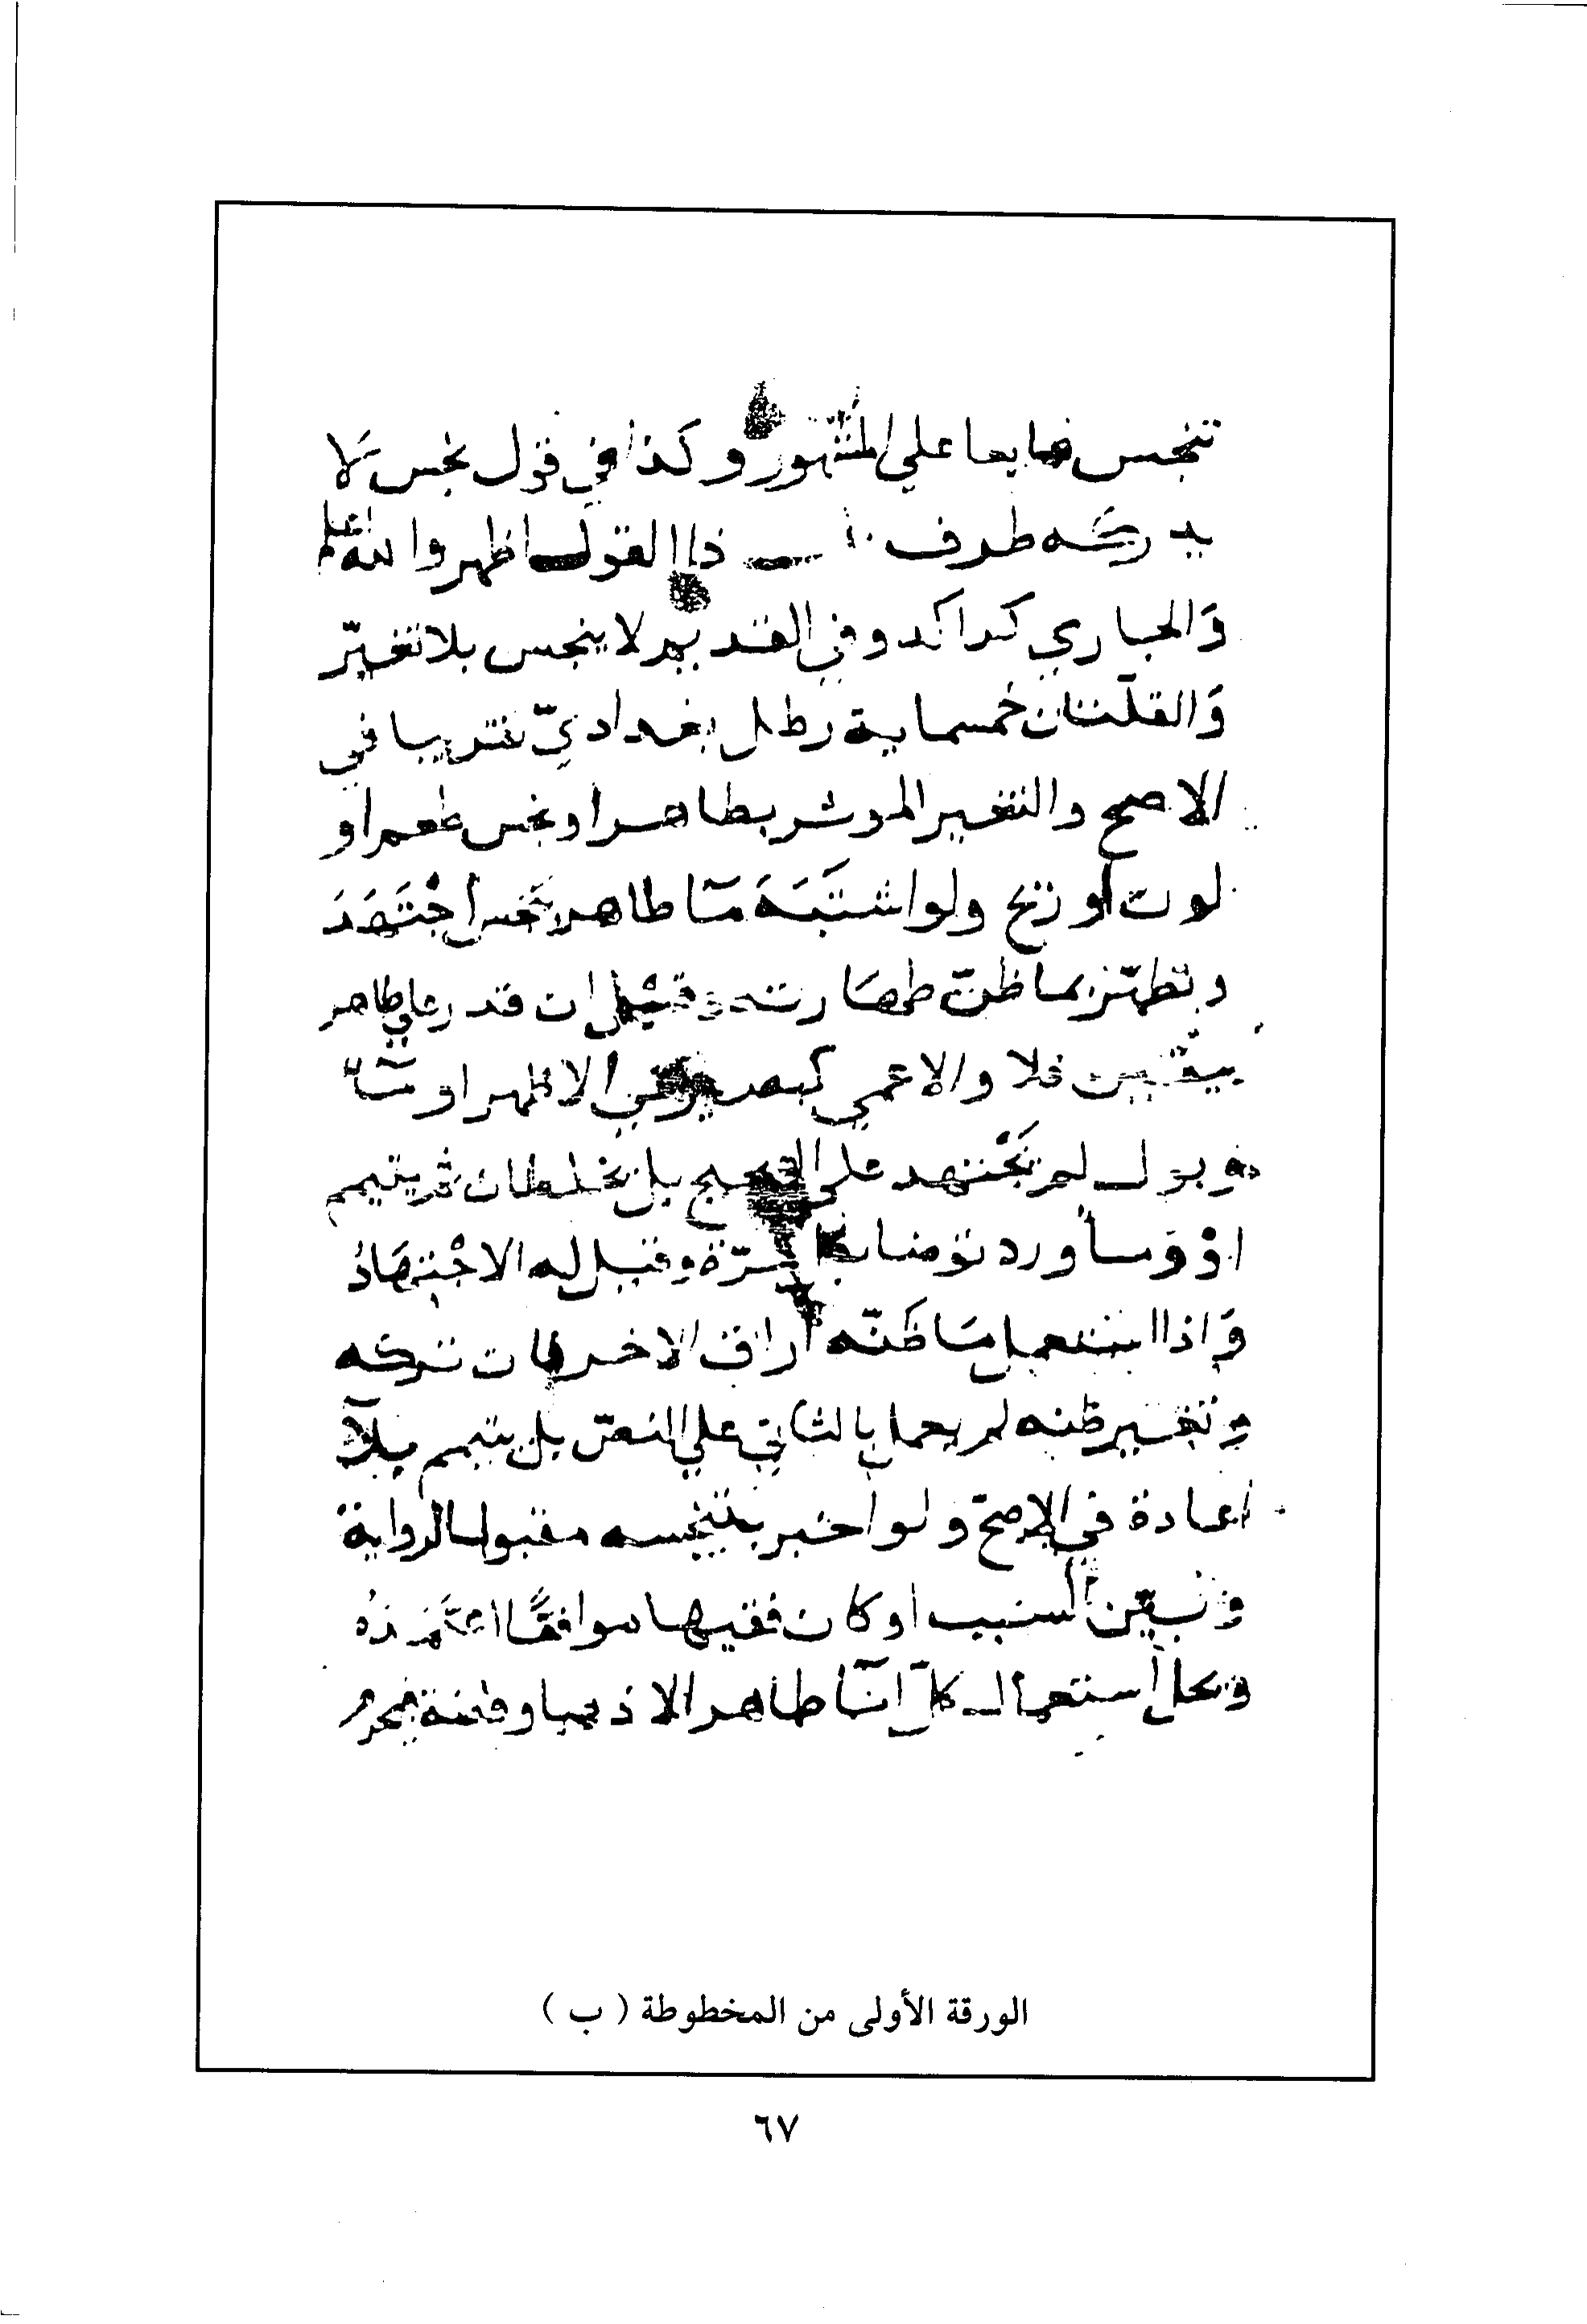 تنجس مايعا علي المشهور وكذا في قول نجس لا
يدركه طرف ذا القول اظهر والله اعلم
وَالجاري كراكد وفي القديم لا ينجس بلا تغيّر
وَالقلّتان خمسماية رطل بغداديّ تقريبا في
الاصح والتغير الموثر بطاهر او نجس طعم او
لون او ريح ولو اشتَبَهَ مآ طاهر بنجس اجْتَهَدَ
وتطهّر بما ظنّ طهَارته وقيْل ان قدر علي طاهر
بيقين فلا والاعمي كبصير في الاظهر او مآ
وبول لم يَجْتهد علي الصحيح بل يخلطان ثم يتيمم
اوْ وَمآ ورد توضا بكل مرّة وقيل له الاجْتهَادُ
وَاذا استعمل مَا ظَنّه اراق الاخر فان تركه
وتغير ظنه لم يعمل بالثاني علي النصّ بل يتيمم بلآ
اعادة في الاصحّ ولو اخبر بتنجسه مقبول الرواية
وبيّن السبب او كان فقيها موافقًا اعتَمَدَهُ
ويحل استعمال كلّ انآ طاهر الا ذهبا وفضة فيحرمُ
الورقة الأولى من المخطوطة ( ب )
٦٧